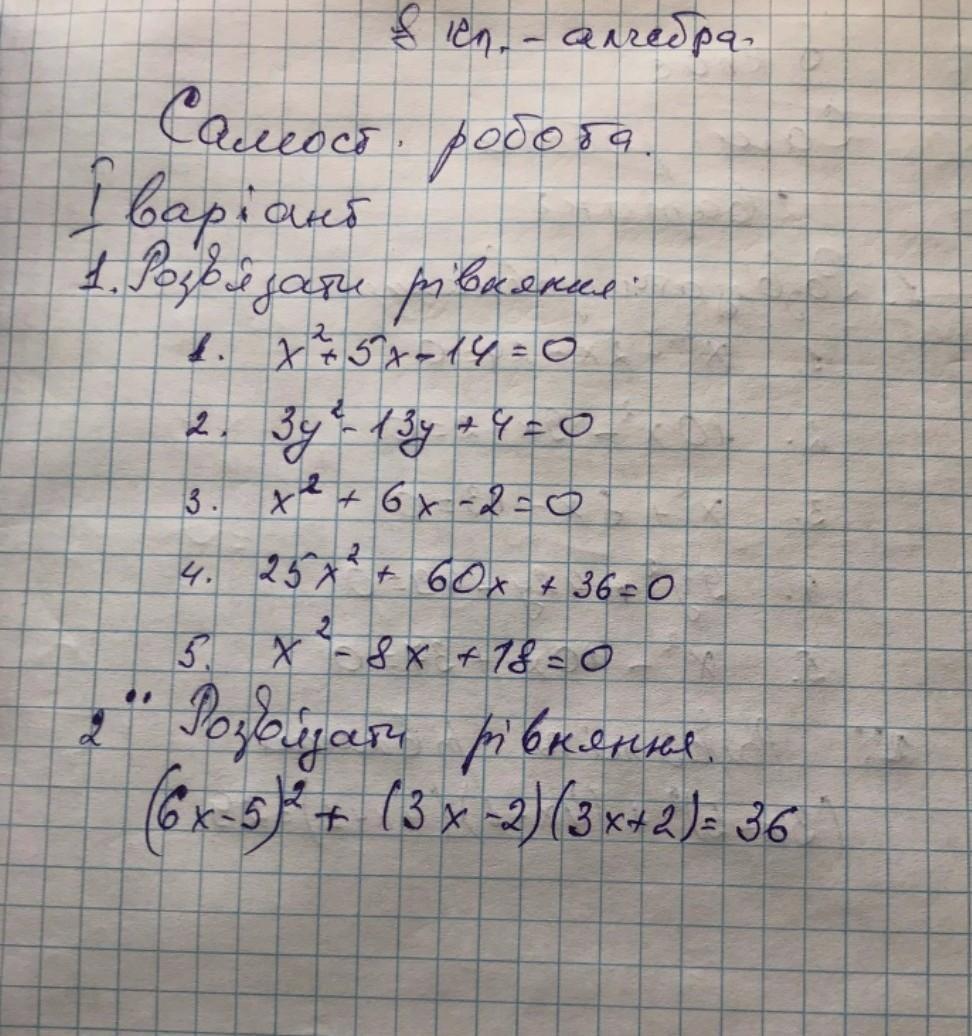 8 кл. - алгебра.
Самост. робота.
І варіант
1. Розв'язати рівняння:
1. x² + 5x - 14 = 0
2. 3y² - 13y + 4 = 0
3. x² + 6x - 2 = 0
4. 25x² + 60x + 36 = 0
5. x² - 8x + 18 = 0
2¨ Розв'язати рівняння.
(6x - 5)² + (3x - 2)(3x + 2) = 36